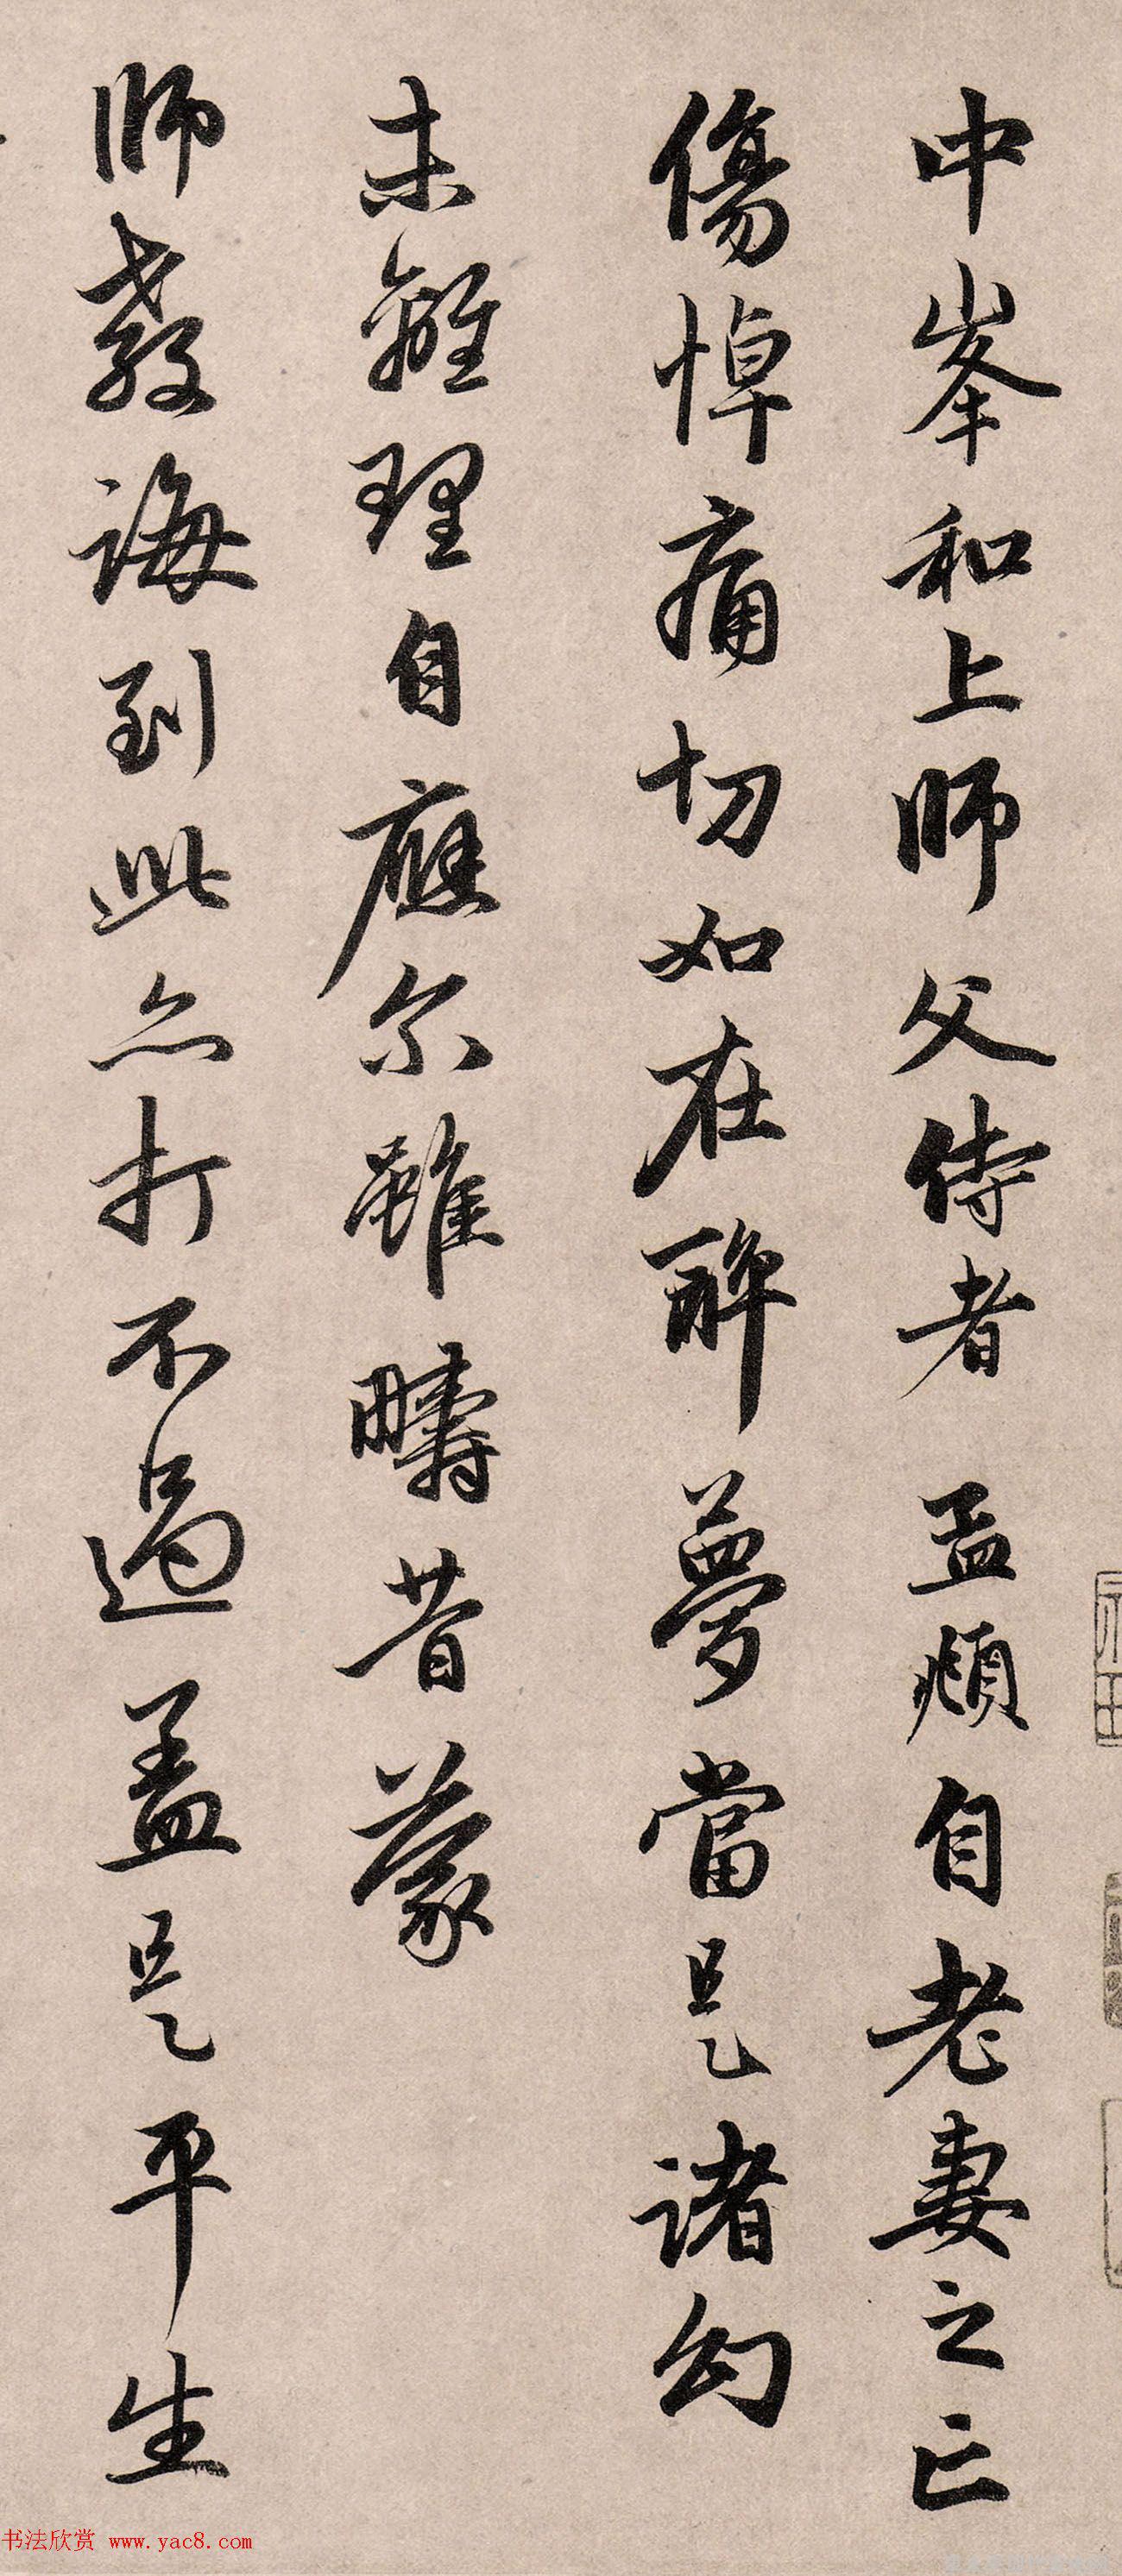 中峯和上師父侍者 孟頫自老妻之亡
傷悼痛切如在醉夢當是諸幻
未離理自應尔雖疇昔蒙
師教誨到此亦打不過盖是平生
书法欣赏 www.yac8.com